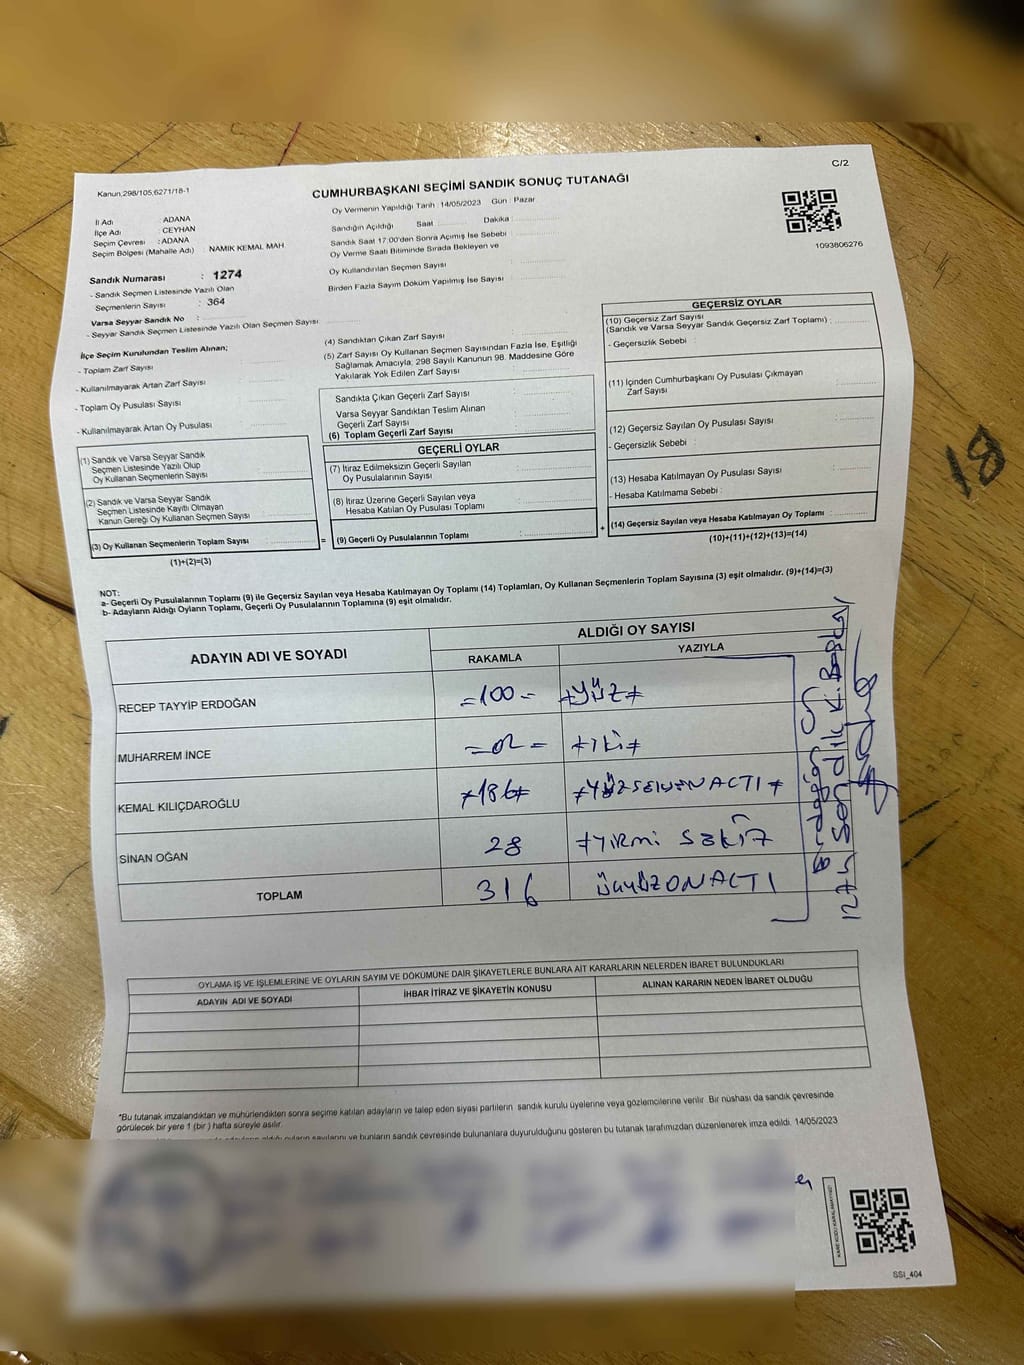 C/2
Kanun,298/105,6271/18-1
CUMHURBAŞKANI SEÇİMİ SANDIK SONUÇ TUTANAĞI
İl Adı : ADANA
İlçe Adı : CEYHAN
Seçim Çevresi : ADANA
Seçim Bölgesi (Mahalle Adı) : NAMIK KEMAL MAH
Sandık Numarası : 1274
- Sandık Seçmen Listesinde Yazılı Olan
Seçmenlerin Sayısı : 364
Varsa Seyyar Sandık No :
- Seyyar Sandık Seçmen Listesinde Yazılı Olan Seçmen Sayısı:
Oy Vermenin Yapıldığı Tarih : 14/05/2023 Gün : Pazar
Sandığın Açıldığı Saat Dakika :
Sandık Saat 17:00'den Sonra Açımış İse Sebebi :
Oy Verme Saati Bitiminde Sırada Bekleyen ve
Oy Kullandırılan Seçmen Sayısı :
Birden Fazla Sayım Döküm Yapılmış İse Sayısı :
1093806276
İlçe Seçim Kurulundan Teslim Alınan;
- Toplam Zarf Sayısı
- Kullanılmayarak Artan Zarf Sayısı
- Toplam Oy Pusulası Sayısı
- Kullanılmayarak Artan Oy Pusulası
(1) Sandık ve Varsa Seyyar Sandık
Seçmen Listesinde Yazılı Olup
Oy Kullanan Seçmenlerin Sayısı
(2) Sandık ve Varsa Seyyar Sandık
Seçmen Listesinde Kayıtlı Olmayan
Kanun Gereği Oy Kullanan Seçmen Sayısı
(3) Oy Kullanan Seçmenlerin Toplam Sayısı :
(1)+(2)=(3)
(4) Sandıktan Çıkan Zarf Sayısı :
(5) Zarf Sayısı Oy Kullanan Seçmen Sayısından Fazla İse, Eşitliği
Sağlamak Amacıyla, 298 Sayılı Kanunun 98. Maddesine Göre
Yakılarak Yok Edilen Zarf Sayısı :
Sandıkta Çıkan Geçerli Zarf Sayısı :
Varsa Seyyar Sandıktan Teslim Alınan
Geçerli Zarf Sayısı :
(6) Toplam Geçerli Zarf Sayısı :
GEÇERLİ OYLAR
(7) İtiraz Edilmeksizin Geçerli Sayılan
Oy Pusulalarının Sayısı :
(8) İtiraz Üzerine Geçerli Sayılan veya
Hesaba Katılan Oy Pusulası Toplamı :
= (9) Geçerli Oy Pusulalarının Toplamı :
GEÇERSİZ OYLAR
(10) Geçersiz Zarf Sayısı
(Sandık ve Varsa Seyyar Sandık Geçersiz Zarf Toplamı) :
- Geçersizlik Sebebi :
(11) İçinden Cumhurbaşkanı Oy Pusulası Çıkmayan
Zarf Sayısı :
(12) Geçersiz Sayılan Oy Pusulası Sayısı :
- Geçersizlik Sebebi :
(13) Hesaba Katılmayan Oy Pusulası Sayısı :
- Hesaba Katılmama Sebebi :
+ (14) Geçersiz Sayılan veya Hesaba Katılmayan Oy Toplamı :
(10)+(11)+(12)+(13)=(14)
18
NOT:
a- Geçerli Oy Pusulalarının Toplamı (9) ile Geçersiz Sayılan veya Hesaba Katılmayan Oy Toplamı (14) Toplamları, Oy Kullanan Seçmenlerin Toplam Sayısına (3) eşit olmalıdır. (9)+(14)=(3)
b- Adayların Aldığı Oyların Toplamı, Geçerli Oy Pusulalarının Toplamına (9) eşit olmalıdır.
ADAYIN ADI VE SOYADI ALDIĞI OY SAYISI
RAKAMLA YAZIYLA
RECEP TAYYİP ERDOĞAN =100= ≠YÜZ≠
MUHARREM İNCE =02= ≠İKİ≠
KEMAL KILIÇDAROĞLU ≠186≠ ≠YÜZSEKSENALTI≠
SİNAN OĞAN 28 ≠YIRMİ SEKİZ
TOPLAM 316 ÜÇYÜZONALTI
1274 Sandık K. Başkanı
OYLAMA İŞ VE İŞLEMLERİNE VE OYLARIN SAYIM VE DÖKÜMÜNE DAİR ŞİKAYETLERLE BUNLARA AİT KARARLARIN NELERDEN İBARET BULUNDUKLARI
ADAYIN ADI VE SOYADI İHBAR İTİRAZ VE ŞİKAYETİN KONUSU ALINAN KARARIN NEDEN İBARET OLDUĞU
*Bu tutanak imzalandıktan ve mühürlendikten sonra seçime katılan adayların ve talep eden siyasi partilerin sandık kurulu üyelerine veya gözlemcilerine verilir. Bir nüshası da sandık çevresinde
görülecek bir yere 1 (bir) hafta süreyle asılır.
sayılarını ve bunların sandık çevresinde bulunanlara duyurulduğunu gösteren bu tutanak tarafımızdan düzenlenerek imza edildi. 14/05/2023
KARE KODU KARALAMAYINIZ!
SSI_404